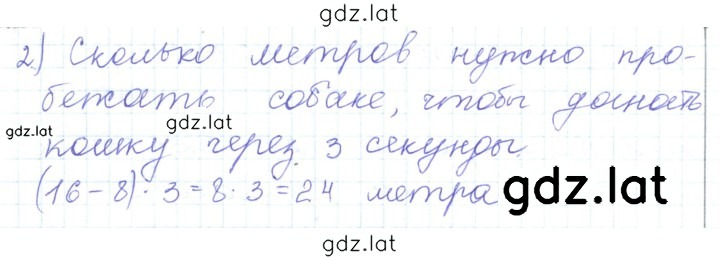 gdz.lat
2) Сколько метров нужно про-
бежать собаке, чтобы догнать
gdz.lat
gdz.lat
кошку через 3 секунды.
(16-8)·3=8·3=24 метра
gdz.lat
gdz.lat